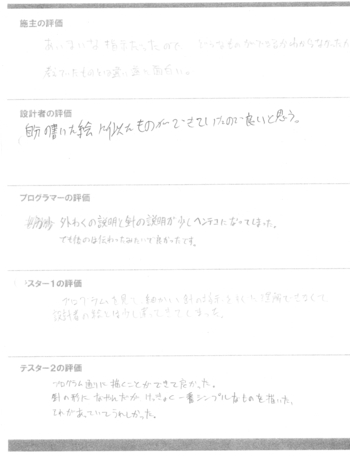 施主の評価
あいまいな指示だったので、どんなものができるか分からなかったが
思っていたものとは違った
設計者の評価
自分の書いた絵に似たものができていたので良いと思う。
プログラマーの評価
外わくの説明と針の説明が少しヘンテコになってしまった。
でも他のは伝わったみたいで良かったです。
テスター1の評価
プログラムを見て細かい針の絵を
設計者の絵とは少し違ってきてしまった。
テスター2の評価
プログラム通りに描くことができて良かった。
針の形になやんだが、けっきょく一番シンプルなものを描いた。
それがあっていてうれしかった。